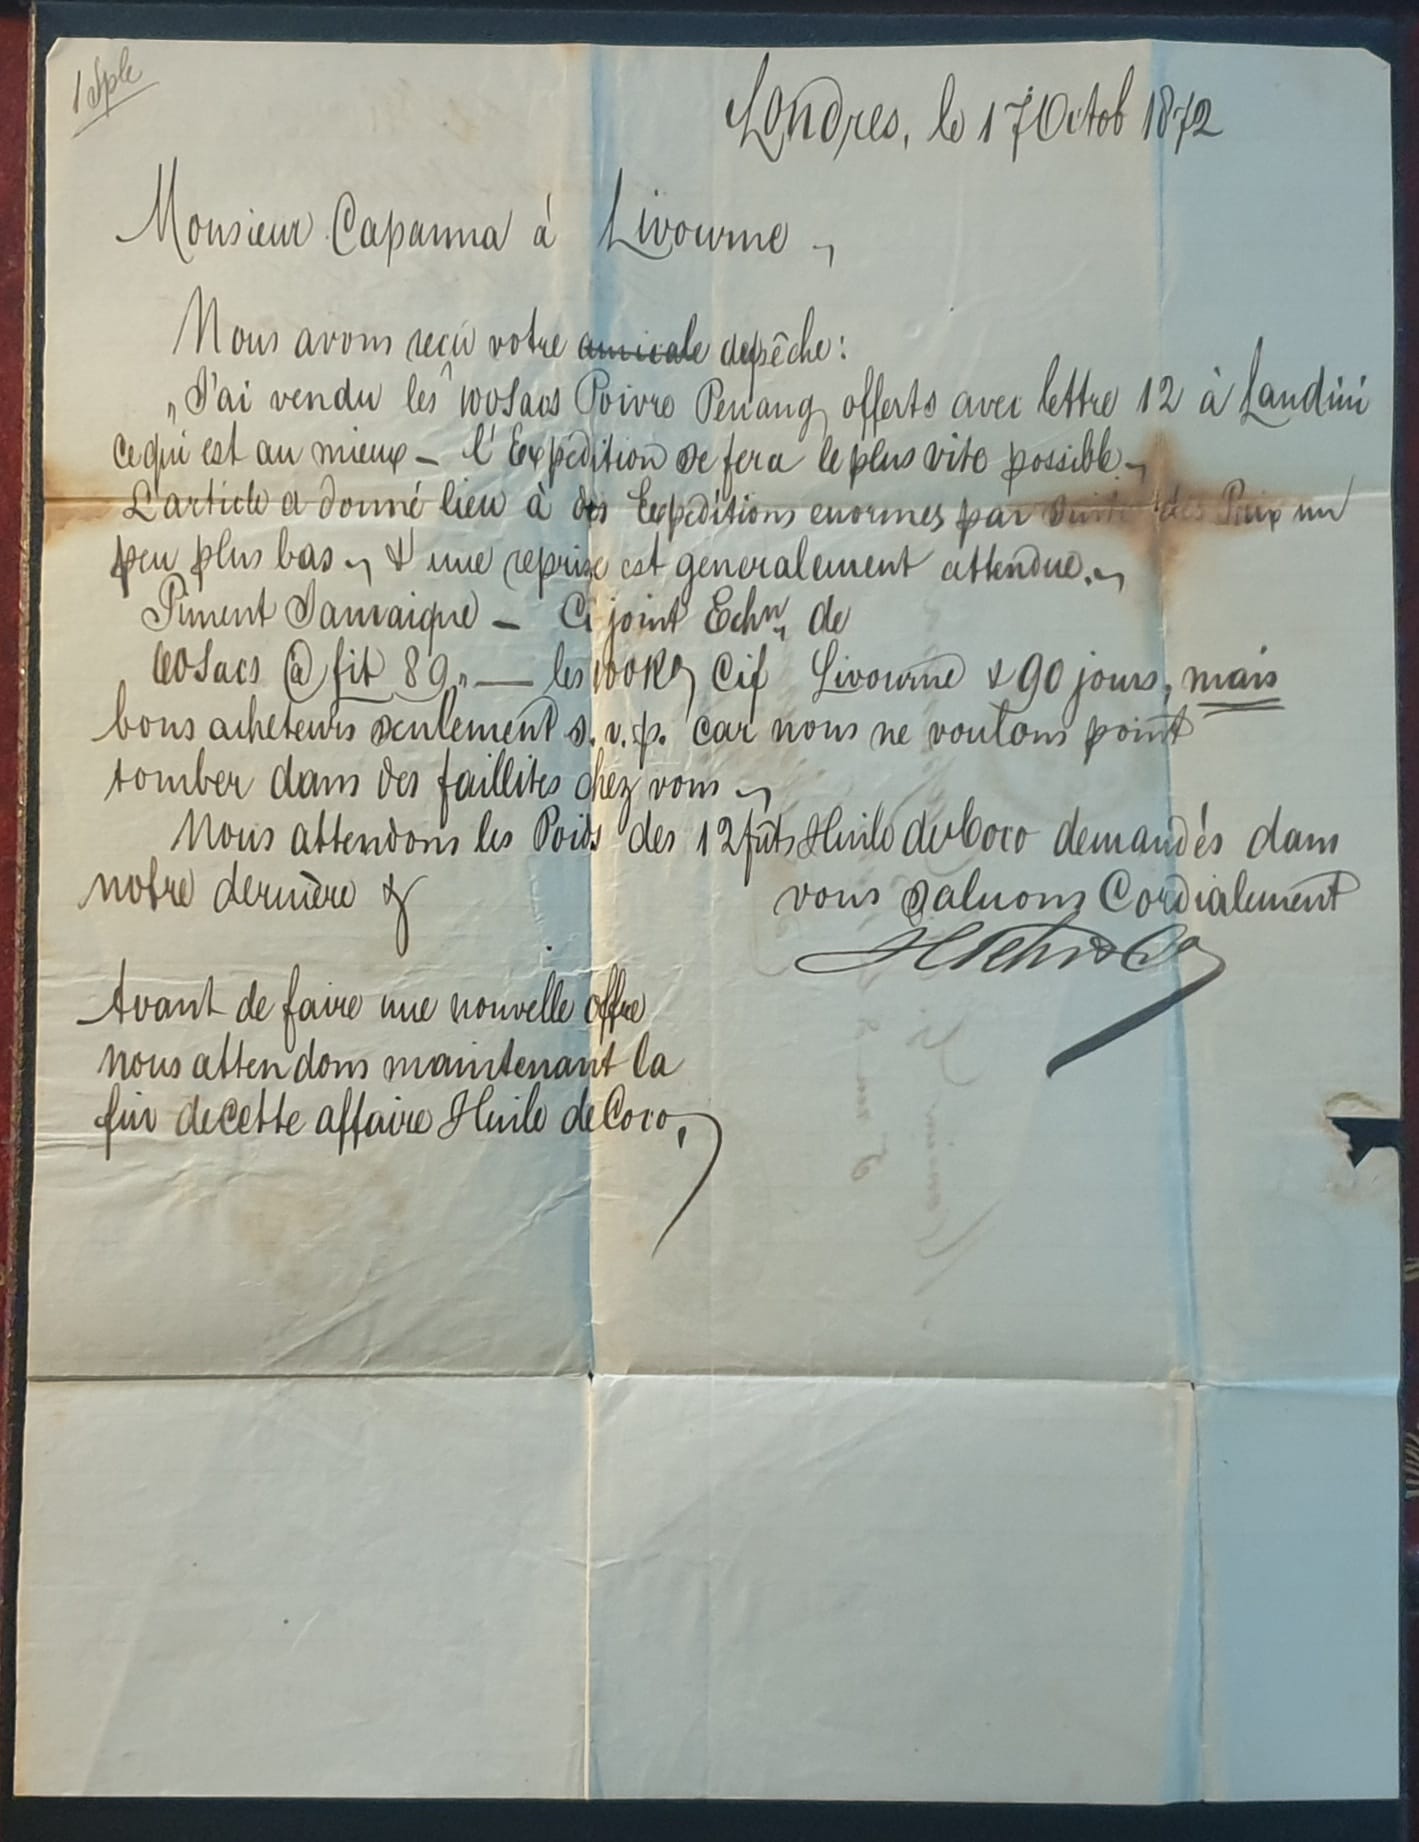 1 Sple
Londres, le 17 Octob 1872
Monsieur Capanna à Livourne
Nous avons reçu votre amicale depêche:
„J'ai vendu les 100 Sacs Poivre Penang offerts avec lettre 12 à Landini
ce qui est au mieux – l'Expédition se fera le plus vite possible
L'article a donné lieu à des Expéditions enormes par suite des Prix un
peu plus bas & une reprise est generalement attendue.
Piment Jamaique – Ci joint Echn de
60 Sacs @ fit 89 „— les 100 Kg Cif Livourne & 90 jours, mais
bons acheteurs seulement s. v. p. car nous ne voulons point
tomber dans des faillites chez vous
Nous attendons les Poids des 12 fûts Huile de Coco demandés dans
notre dernière & vous saluons Cordialement
Avant de faire une nouvelle offre
nous attendons maintenant la
fin de cette affaire Huile de Coco,